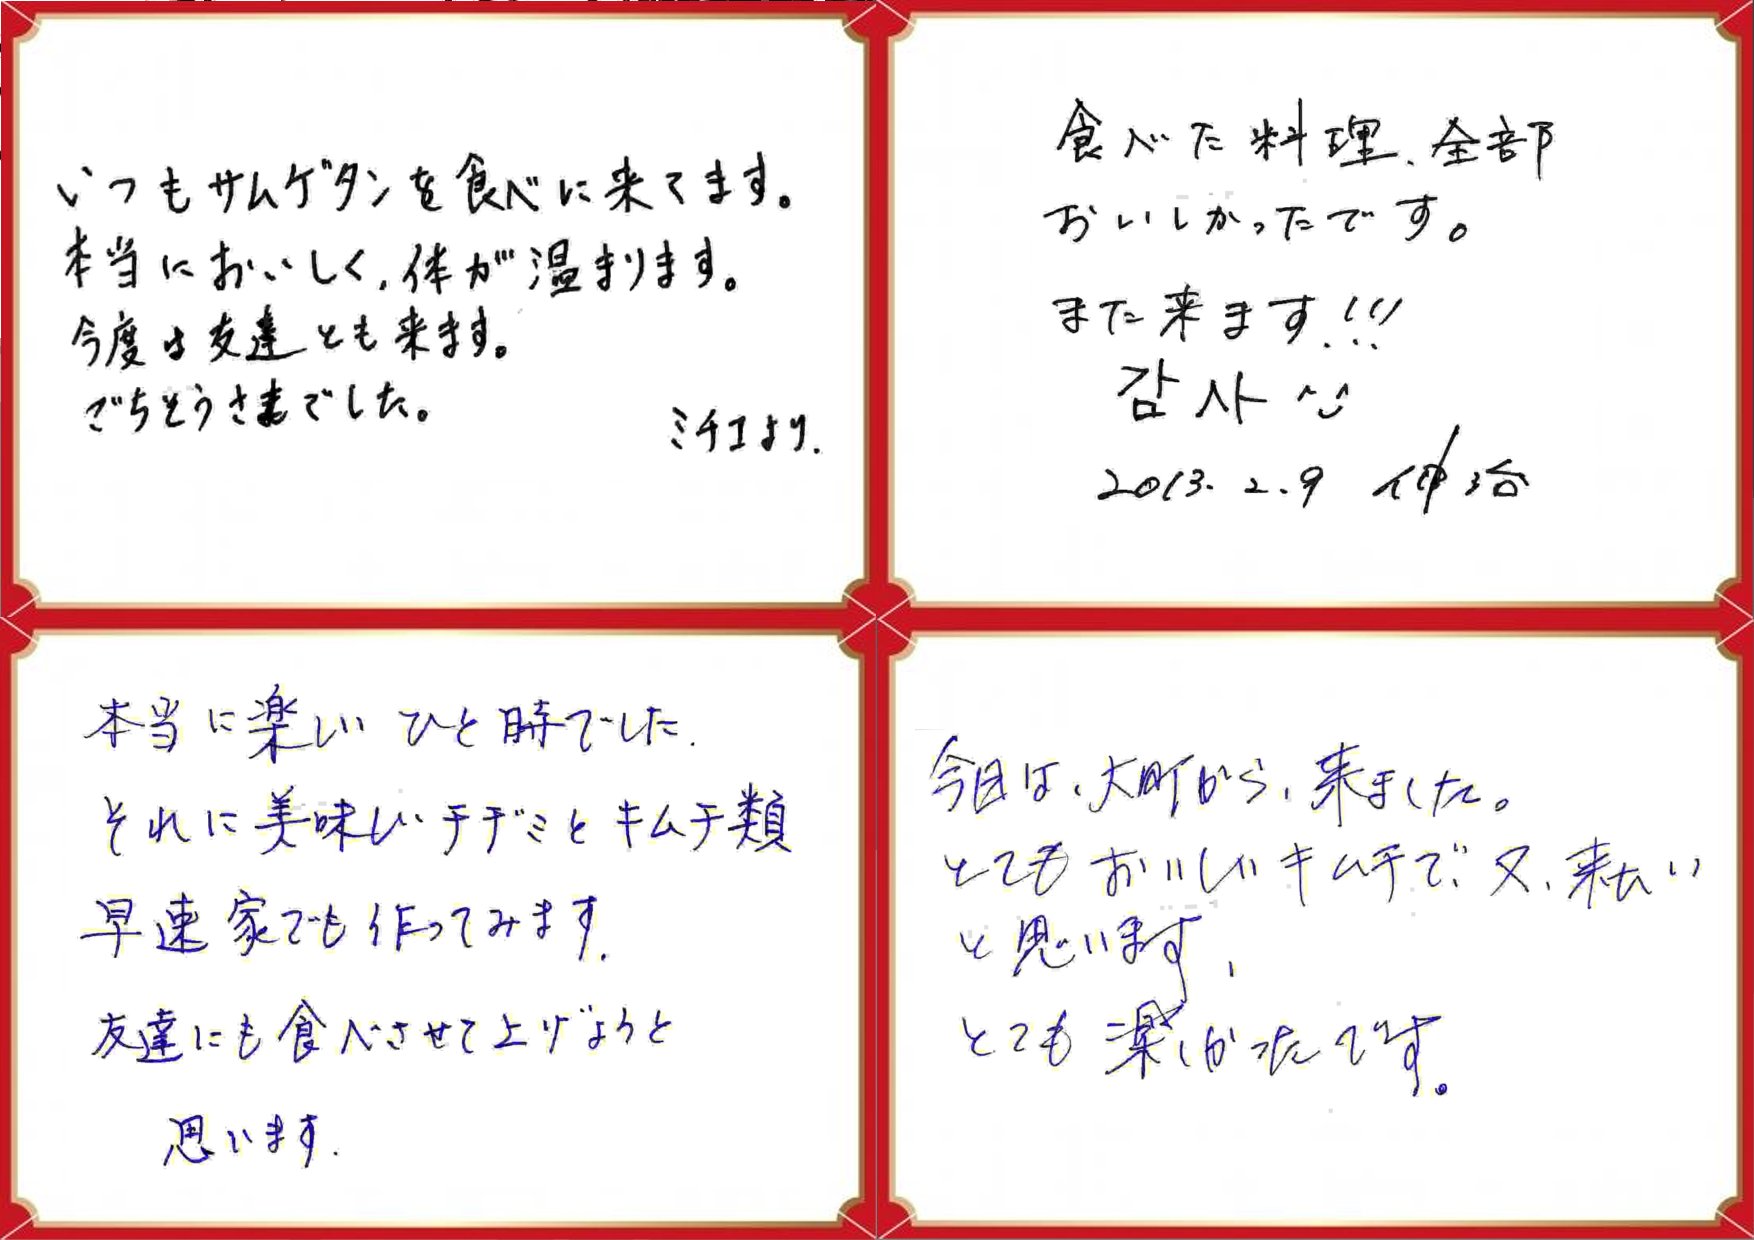 いつもサムゲタンを食べに来てます。
本当においしく、体が温まります。
今度は友達とも来ます。
ごちそうさまでした。
ミチコより.
食べた料理、全部
おいしかったです。
また来ます!!!
감사
2013. 2. 9 伸治
本当に楽しいひと時でした.
それに美味しいチヂミとキムチ類
早速家でも作ってみます.
友達にも食べさせて上げようと
思います.
今日は、大町から、来ました。
とてもおいしいキムチで、又、来たい
と思います、
とても楽しかったです。